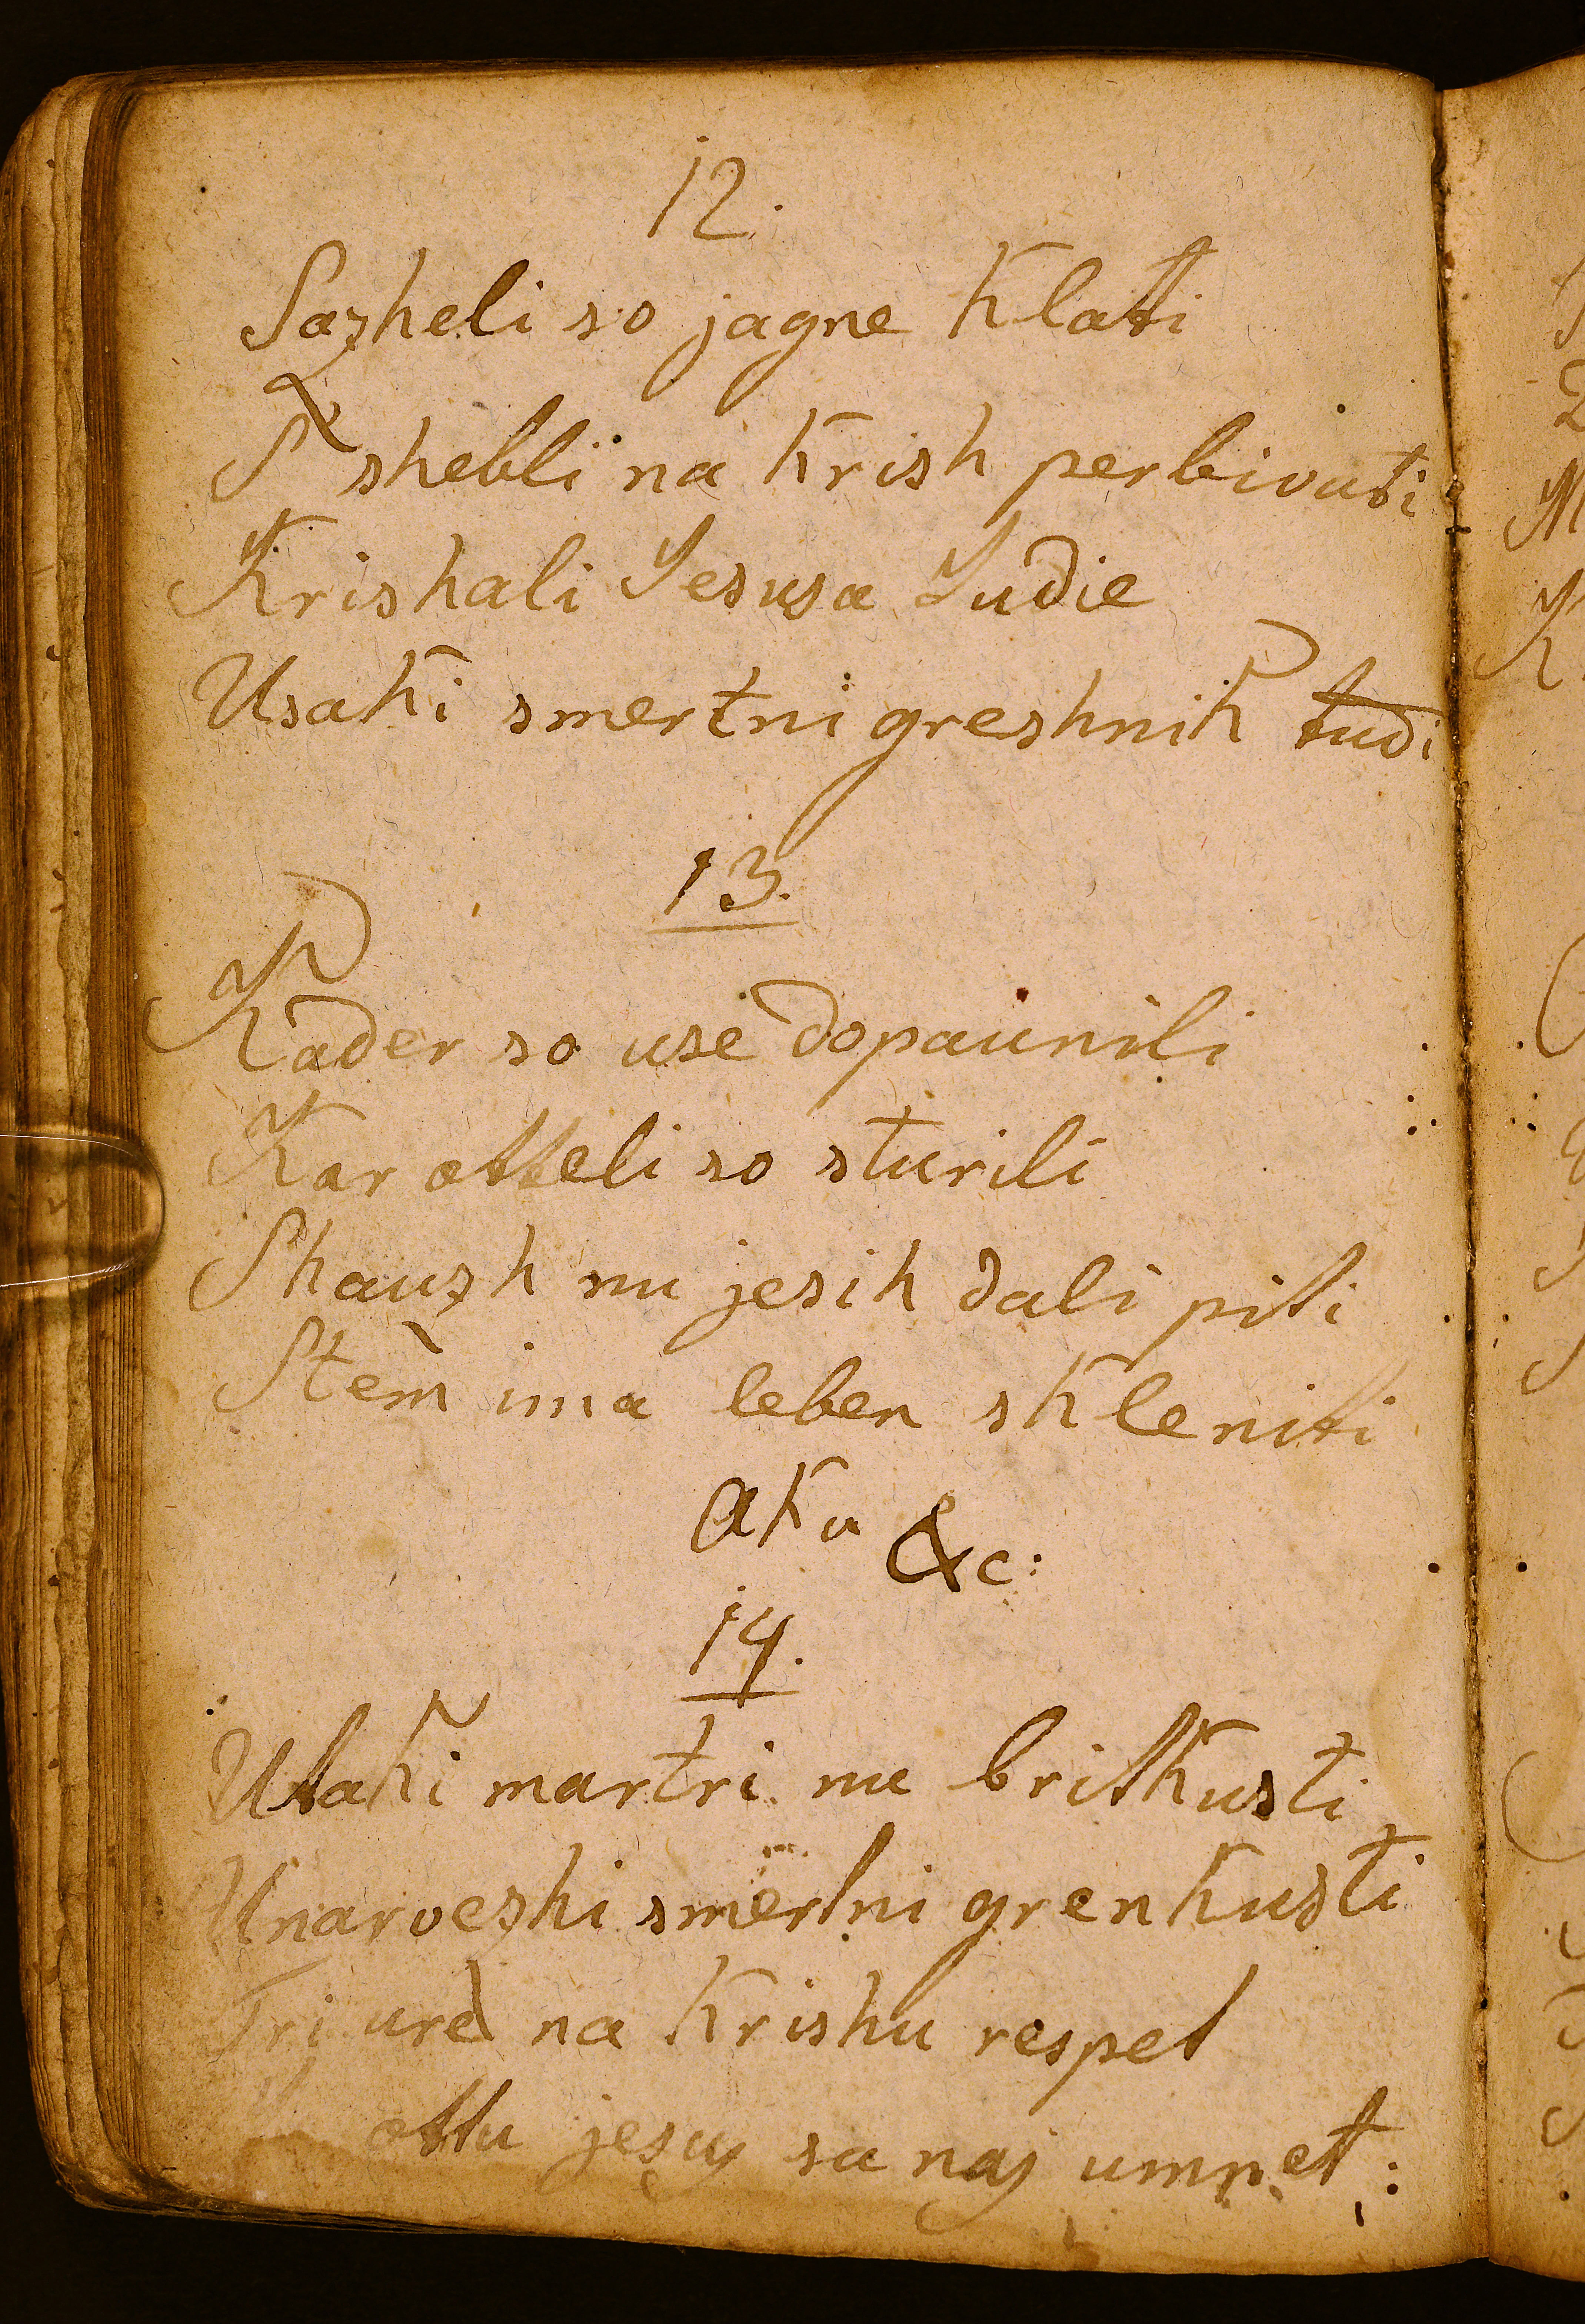 12.
Sazheli so jagne klati
S shebli na krish perbivati
Krishali Jesusa Judie
Usaki smertni greshnik tudi
13.
Kader so use dopaunili
Kar otteli so sturili
Shauzh nu jesih dali piti
Stem ima leben skleniti
aku &c:
14.
Utaki martri nu britkusti
Unarvezhi smertni grenkusti
Tri ured na krishu respet
ottu jesus sa naj umret: